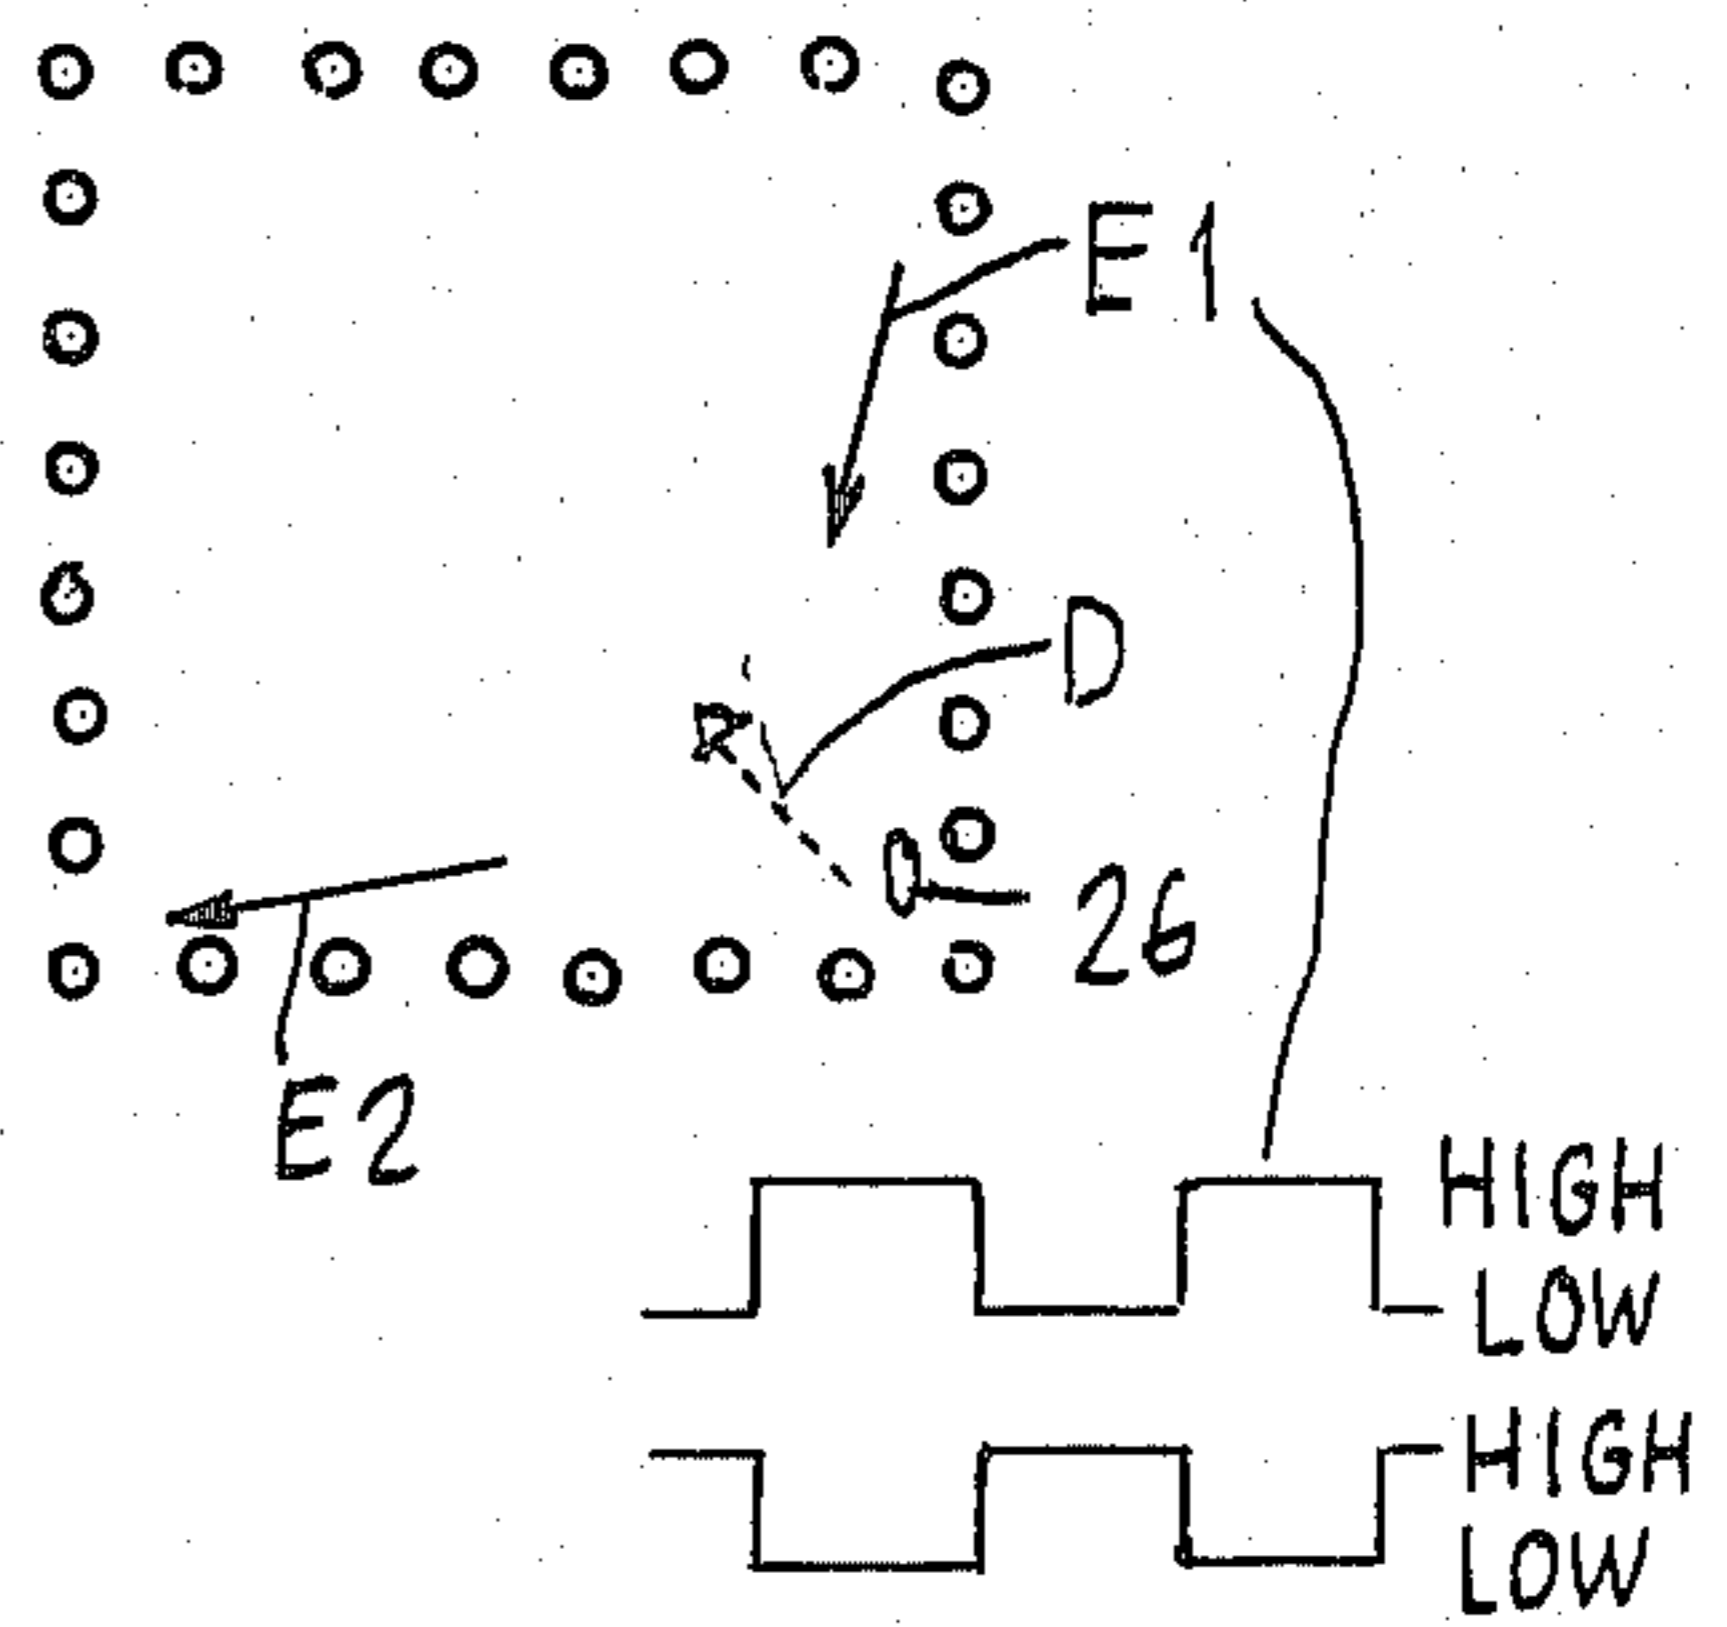 E1
D
26
E2
HIGH
LOW
HIGH
LOW